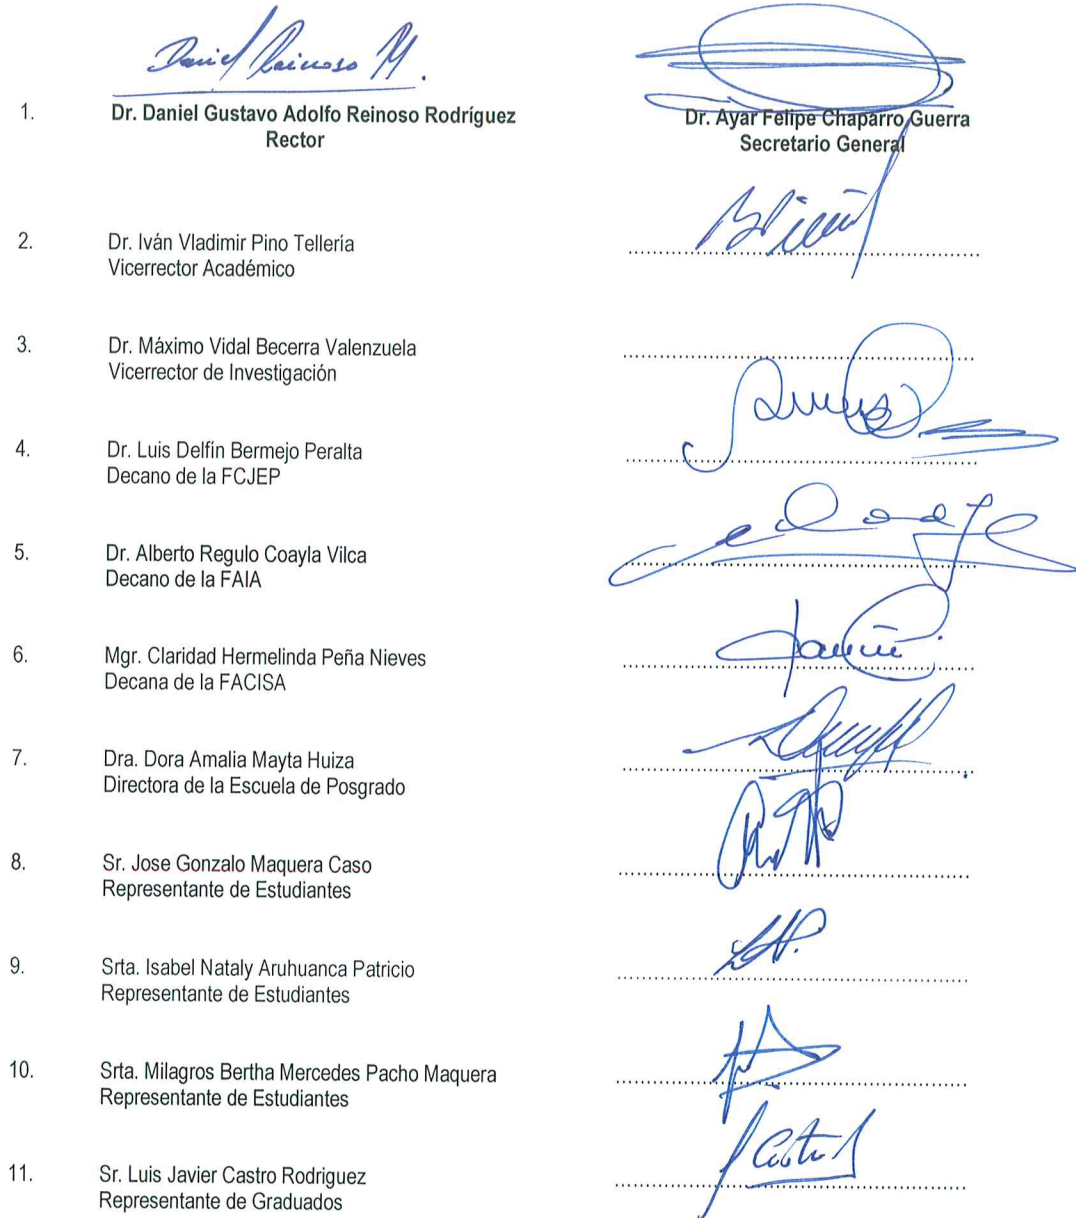 Daniel Reinoso M.
1. Dr. Daniel Gustavo Adolfo Reinoso Rodríguez
Rector
Dr. Ayar Felipe Chaparro Guerra
Secretario General
2. Dr. Iván Vladimir Pino Tellería
Vicerrector Académico
3. Dr. Máximo Vidal Becerra Valenzuela
Vicerrector de Investigación
4. Dr. Luis Delfín Bermejo Peralta
Decano de la FCJEP
5. Dr. Alberto Regulo Coayla Vilca
Decano de la FAIA
6. Mgr. Claridad Hermelinda Peña Nieves
Decana de la FACISA
7. Dra. Dora Amalia Mayta Huiza
Directora de la Escuela de Posgrado
8. Sr. Jose Gonzalo Maquera Caso
Representante de Estudiantes
9. Srta. Isabel Nataly Aruhuanca Patricio
Representante de Estudiantes
10. Srta. Milagros Bertha Mercedes Pacho Maquera
Representante de Estudiantes
11. Sr. Luis Javier Castro Rodriguez
Representante de Graduados